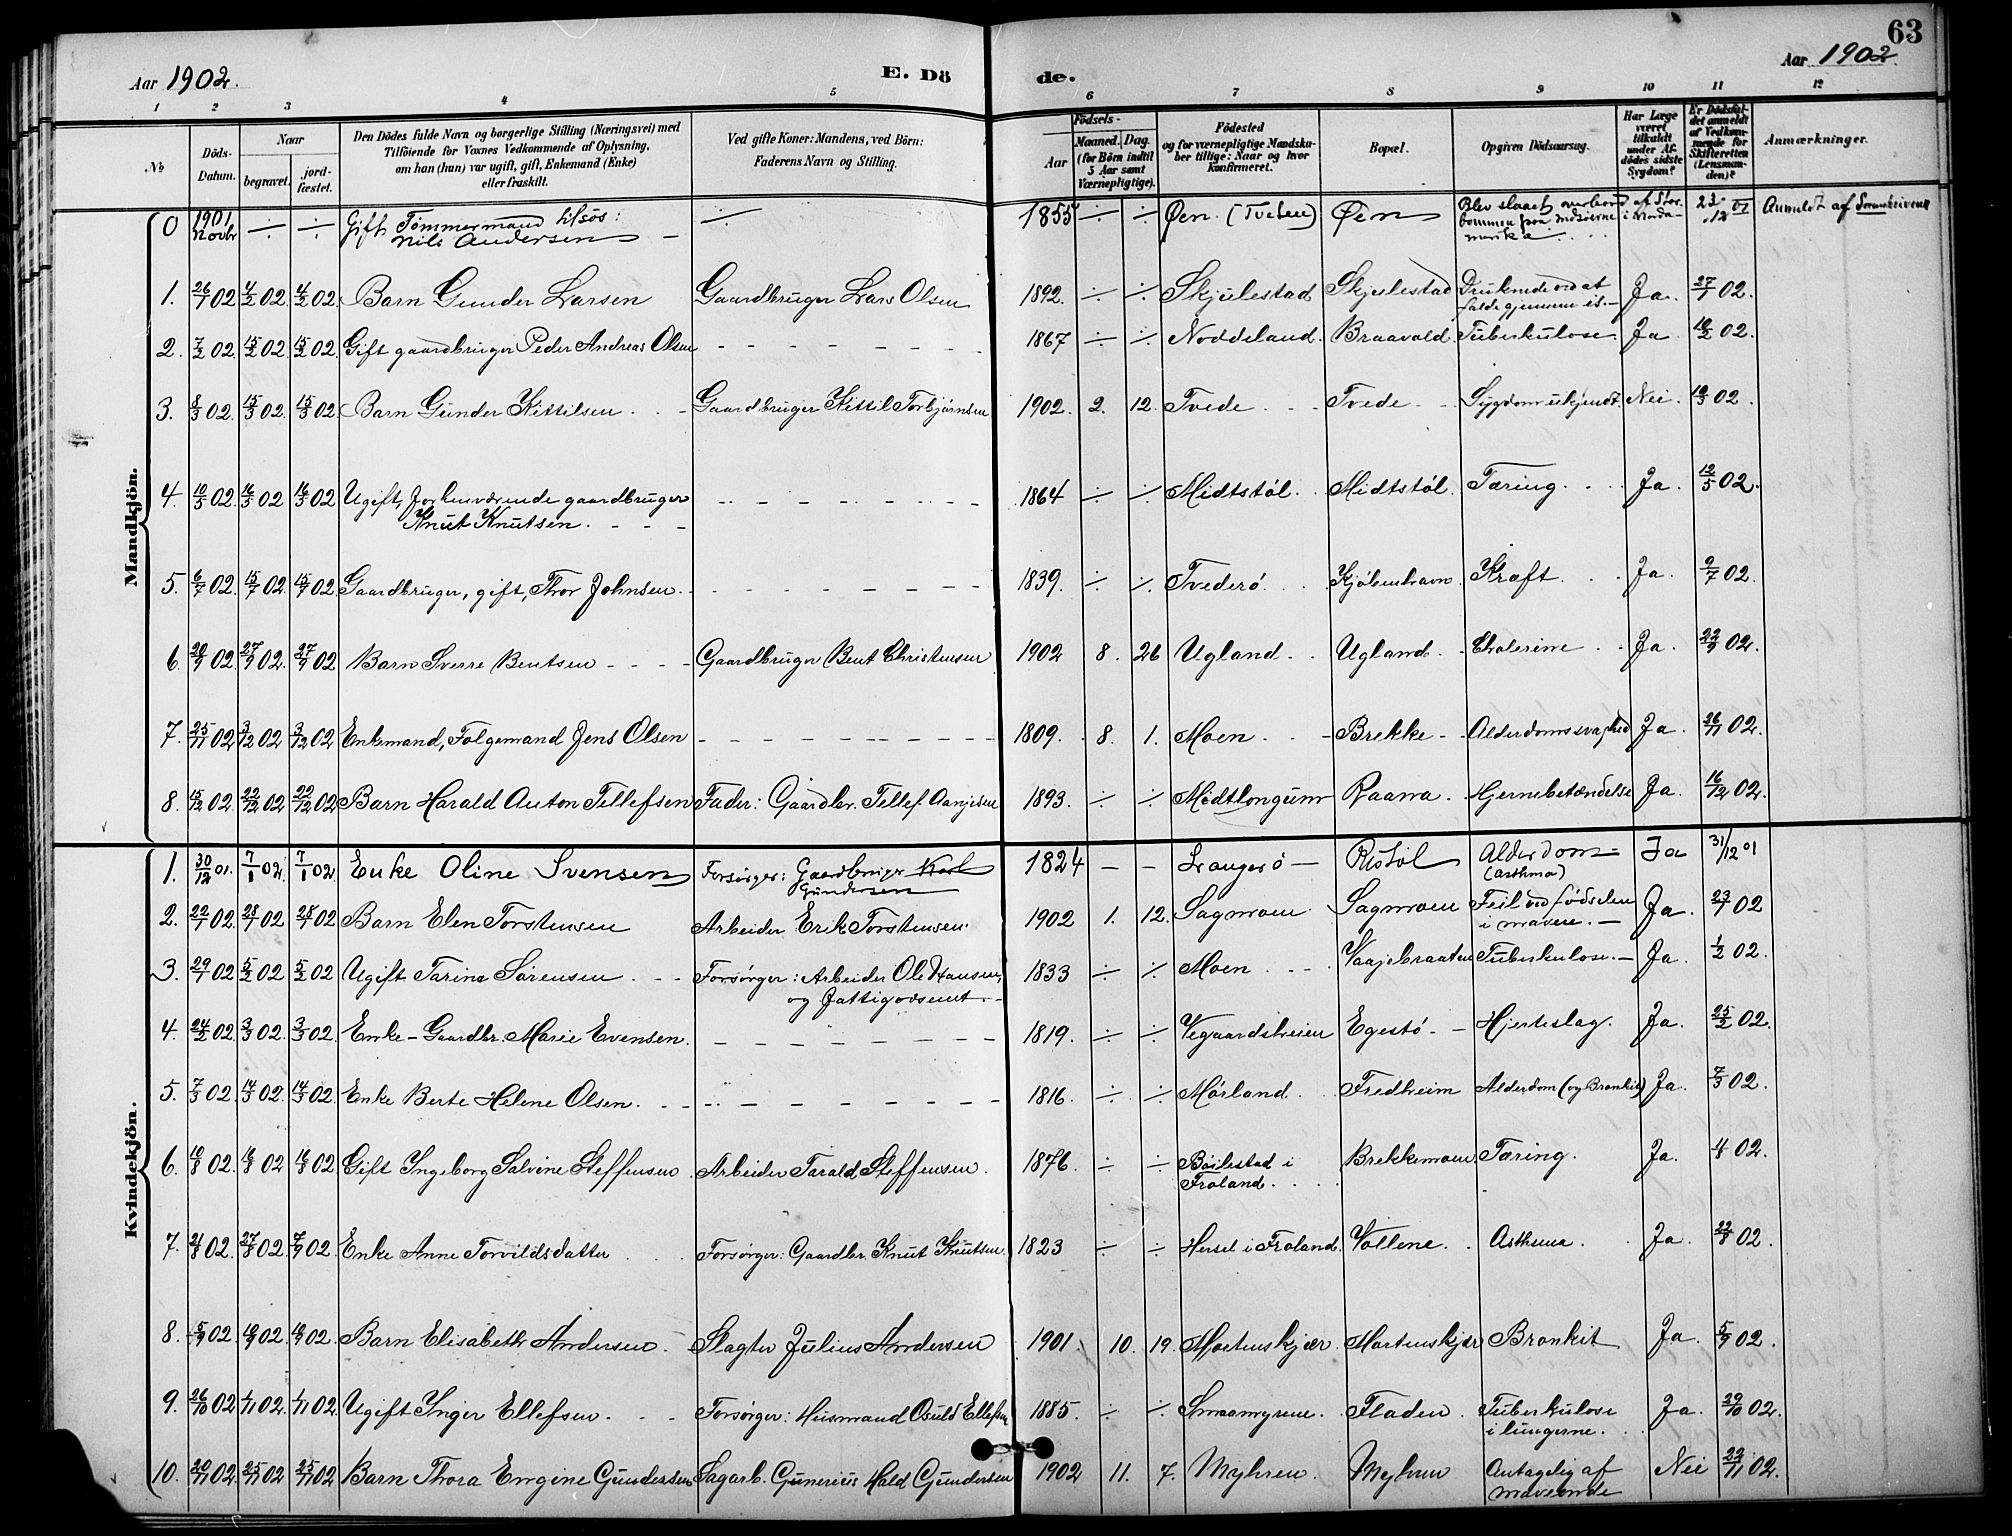 63
Aar 1902.
E. Dö
de.
Aar 1902.
1 2 3 4 5 6 7 8 9 10 11 12
No
Döds-Datum.
Naar
begravet.
jord-fæstet.
Den Dödes fulde Navn og borgerlige Stilling (Næringsvei) med
Tilföiende for Voxnes Vedkommende af Oplysning,
om han (hun) var ugift, gift, Enkemand (Enke)
eller fraskilt.
Ved gifte Koner: Mandens, ved Börn:
Faderens Navn og Stilling.
Födsels-
Aar
Maaned. Dag.
(for Börn indtil
5 Aar samt
Værnepligtige).
Födested
og for værnepligtige Mandska-
ber tillige: Naar og hvor
konfirmeret.
Bopæl.
Opgiven Dödsaarsag.
Har Læge
været
tilkaldt
under Af-
dödes sidste
Sygdom?
Er Dödsfal-
det anmeldt
af Vedkom-
mende for
Skifteretten
(Lensman-
den)?
Anmærkninger.
Mandkjön.
0 1901 Novbr ÷ ÷ Gift Tømmermand tilsøs: Nils Andersen ÷ 1855 ÷ ÷ Øen (Tveten) Øen Blev slaaet overbord af Storbommen paa reise i Nordamerika 23/12 01 Anmeldt af Sorenskriveren
1. 26/1 02 4/2 02. 4/2 02. Barn Gunder Larsen Gaardbruger Lars Olsen 1892. ÷ ÷ Skjulestad Skjulestad Druknede ved at falde gjennem is.- Ja. 27/1 02.
2. 7/2 02. 15/2 02 15/2 02. Gift gaardbruger Peder Andreas Olsen 1867 ÷ ÷ Noddeland. Braavold. Tuberkulose. Ja. 10/2 02.
3. 8/3 02. 15/3 02. 15/3 02 Barn Gunder Kittilsen. Gaardbruger Kittil Torbjørnsen 1902. 2. 12. Tvede Tvede Sygdom ukjendt. Nei. 10/3 02.
4. 10/5 02. 16/5 02 16/5 02. Ugift, forhenværende gaardbruger Knut Knutsen. 1864 ÷ ÷ Midtstøl. Midtstøl. Tæring. Ja. 12/5 02.
5 6/7 02. 15/7 02. 15/7 02 Gaardbruger, gift, Thor Johnsen. 1839. ÷ ÷ Tvederø. Kjøbenhavn. Kræft. Ja. 9/7 02.
6. 20/9 02. 27/9 02. 27/9 02 Barn Sverre Bentsen Gaardbruger Bent Christensen 1902 8. 26 Ugland. Ugland. Cholerine Ja. 22/9 02.
7. 25/11 02 3/12 02 3/12 02 Enkemand, Følgemand Jens Olsen 1809. 8. 1. Moen. Brekke Alderdomssvaghed Ja. 26/11 02.
8. 15/12 02. 22/12 02 22/12 02 Barn Harald Anton Tellefsen Fader: Gaardbr. Tellef Aanjesen 1893. ÷ ÷ Midtlongum Raana. Hjernebetændelse Ja. 16/12 02.
Kvindekjön.
1. 30/12 01. 7/1 02. 7/1 02 Enke Oline Svensen Forsørger: Gaardbruger Karl Gundersen 1824 - - Langerø Ristøl Alderdom (Asthma) Ja 31/12 01
2. 22/1 02. 28/1 02 28/1 02 Barn Elen Torstensen Arbeider Erik Torstensen 1902 1. 12. Sagmoen Sagmoen Feil ved fødselen i maven.- Ja. 23/1 02
3. 29/1 02 5/2 02 5/2 02 Ugift Tarine Sørensen Forsørger: Arbeider Ole Hansen, og Fattigvæsenet. 1833 ÷ ÷ Moen Vaajebraaten Tuberkulose.- Ja. 1/2 02.
4. 24/2 02 3/3 02. 3/3 02. Enke - Gaardbr. Marie Evensen. 1819. ÷ ÷ Vegaardsheien Egestø. Hjerteslag. Ja. 25/2 02.
5. 7/3 02. 14/3 02. 14/3 02. Enke Berte Helene Olsen. 1816. ÷ ÷ Mørland. Fredheim Alderdom (og Bronkit) Ja. 7/3 02.
6. 10/8 02. 16/8 02 16/8 02 Gift Ingeborg Salvine Steffensen Arbeider Tarald Steffensen. 1876. ÷ ÷ Bøilestad i Froland. Brekkemoen. Tæring. Ja. 02.
7. 21/8 02. 27/8 02. 7/9 02. Enke Anne Torvildsdatter Forsørger: Gaardbr. Knut Knutsen. 1823 ÷ ÷ Hersel i Froland. Vollene. Asthma. Ja. 22/8 02.
8. 5/9 02 10/9 02. 10/9 02. Barn Elisabeth Andersen. Slagter Julius Andersen 1901. 10. 19. Mortenskjær. Mortenskjær Bronkit Ja. 5/9 02.
9. 26/10 02 1/11 02. 1/11 02. Ugift Inger Ellefsen. Forsørger: Husmand Osuld Ellefsen 1885. ÷ ÷ Smaamyrene. Fladen. Tuberkulose i lungerne. Ja. 29/10 02.
10. 20/11 02 25/11 02 25/11 02 Barn Thora Emgine Gundersen Sagarb. Gunerius Hald Gundersen 1902 11. 7. Myhren. Myhren Antagelig af maveonde Nei 22/11 02.